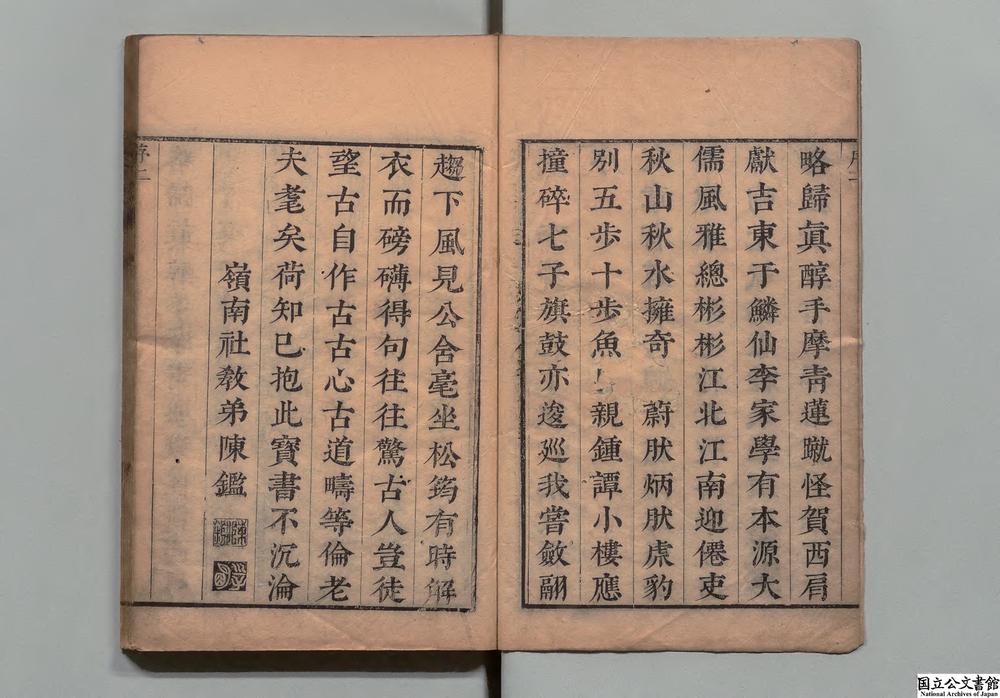 略歸眞醇手摩靑蓮蹴怪賀西肩
獻吉東于鱗仙李家學有本源大
儒風雅總彬彬江北江南迎僊吏
秋山秋水擁奇蔚肰炳肰虎豹
別五步十步魚親鍾譚小樓應
撞碎七子旗鼓亦逡巡我嘗斂翮
趨下風見公舍毫坐松筠有時解
衣而磅礴得句往往驚古人豈徒
望古自作古古心古道疇等倫老
夫耄矣荷知已抱此寶書不沉淪
嶺南社敎弟陳鑑
序二
国立公文書館
National Archives of Japan